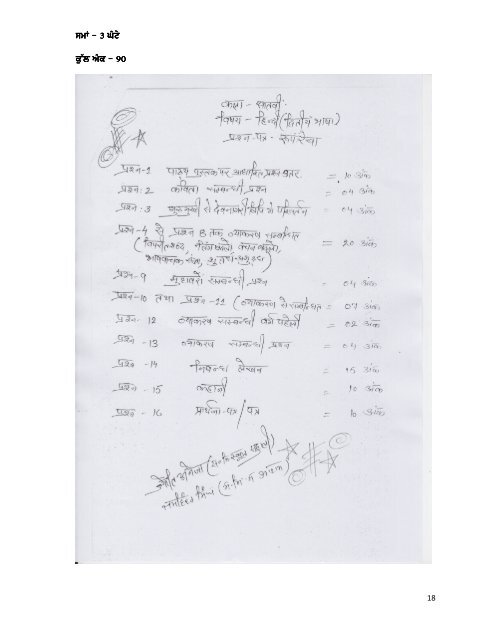 ਸਮਾਂ – 3 ਘੰਟੇ
ਕੁੱਲ ਅੰਕ – 90
कक्षा - सातवीं
विषय - हिन्दी (द्वितीय भाषा)
प्रश्न-पत्र - रूपरेखा
प्रश्न-1 पाठ्य पुस्तक पर आधारित प्रश्न उत्तर = 10 अंक
प्रश्न: 2 कविता सम्बन्धी प्रश्न = 04 अंक
प्रश्न: 3 गुरुमुखी से देवनागरी लिपि में परिवर्तन = 04 अंक
प्रश्न-4 से प्रश्न 8 तक व्याकरण सम्बन्धित
(विपरीत शब्द, लिंग बदलो, वचन बदलो, = 20 अंक
भाववाचक संज्ञा, शुद्ध-अशुद्ध)
प्रश्न-9 मुहावरे सम्बन्धी प्रश्न = 04 अंक
प्रश्न-10 तथा प्रश्न-11 (व्याकरण से सम्बन्धित = 07 अंक
प्रश्न- 12 व्याकरण सम्बन्धी वर्ग पहेली = 02 अंक
प्रश्न -13 व्याकरण सम्बन्धी प्रश्न = 04 अंक
प्रश्न -14 निबन्ध लेखन = 15 अंक
प्रश्न - 15 कहानी = 10 अंक
प्रश्न - 16 प्रार्थना-पत्र / पत्र = 10 अंक
18